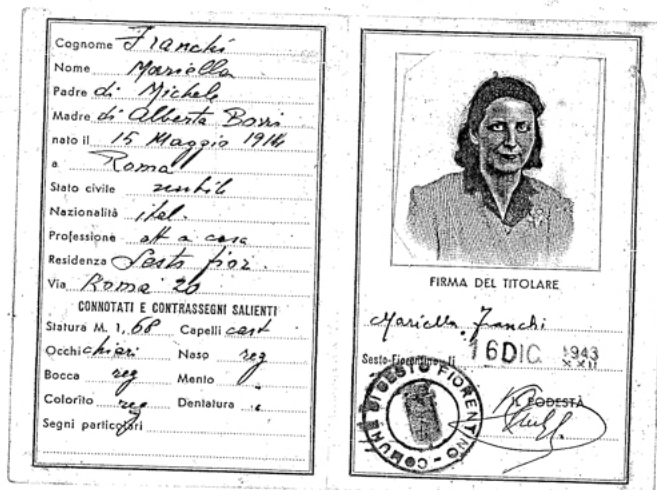 Cognome Franchi
Nome Mariella
Padre di Michele
Madre di Alberta Borri
nato il 15 Maggio 1914
a Roma
Stato civile nubile
Nazionalità ital.
Professione att a casa
Residenza Sesto fior.
Via Roma 20
CONNOTATI E CONTRASSEGNI SALIENTI
Statura M. 1,68 Capelli cast
Occhi chiari Naso reg
Bocca reg Mento
Colorito reg Dentatura
Segni particolari
FIRMA DEL TITOLARE
Mariella Franchi
Sesto-Fiorentino, li 16 DIC. 1943
XXII
IL PODESTÀ
COMUNE DI SESTO FIORENTINO